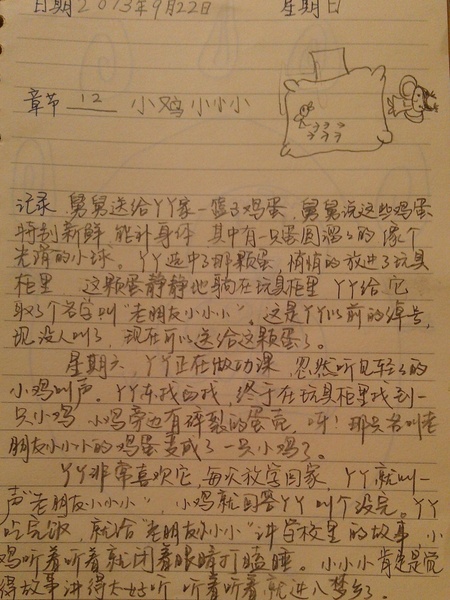 日期2013年9月22日 星期日
章节 12 小鸡小小小
记录 舅舅送给丫丫家一篮子鸡蛋,舅舅说这些鸡蛋
特别新鲜 能补身体 其中有一只蛋圆溜溜的 像个
光滑的小球。丫丫选中了那颗蛋,悄悄的放进了玩具
柜里 这颗蛋静静地躺在玩具柜里 丫丫给它
取了个名字叫"老朋友小小小",这是丫丫以前的绰号,
现没人叫了,现在可以送给这颗蛋了。
星期六,丫丫正在做功课,忽然听见轻轻的
小鸡叫声。丫丫东找西找,终于在玩具柜里找到一
只小鸡 小鸡旁边有碎裂的蛋壳,呀!那只名叫老
朋友小小小的鸡蛋变成了一只小鸡了。
丫丫非常喜欢它,每次放学回家,丫丫就叫一
声"老朋友小小小",小鸡就回答丫丫 叫个没完。丫丫
吃完饭,就给"老朋友小小小"讲学校里的故事,小
鸡听着听着就闭着眼睛打瞌睡。小小小肯定是觉
得故事讲得太好听 听着听着就进入梦乡了。